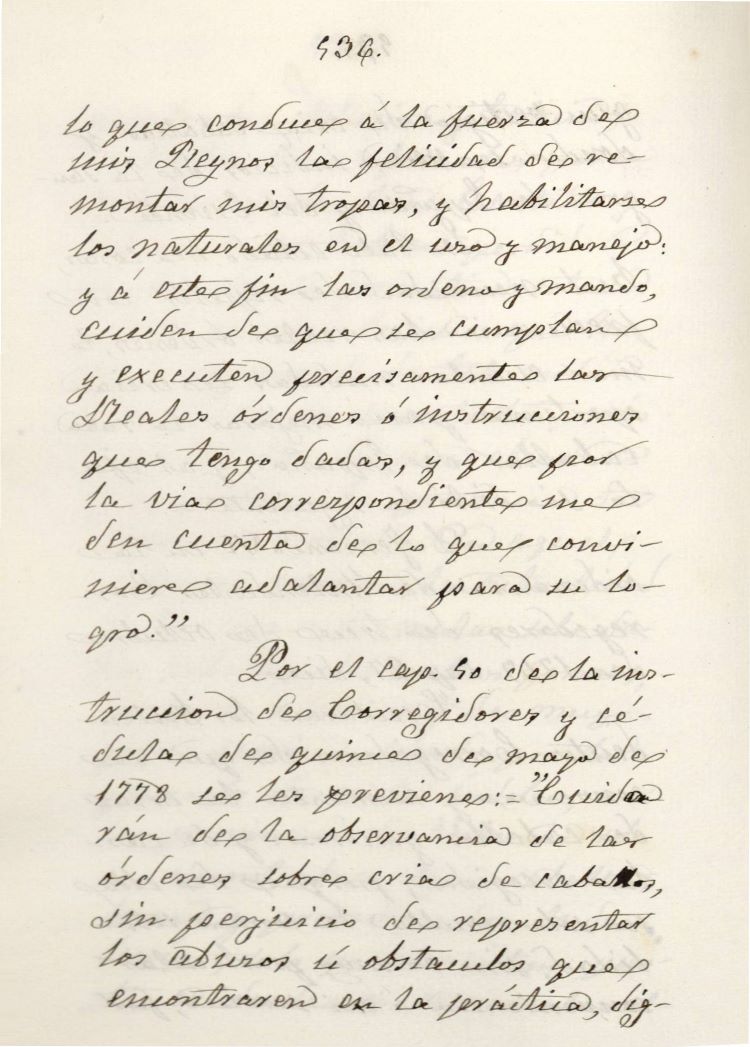 536.
lo que conduce á la fuerza de
mis Reynos la felicidad de re-
montar mis tropas, y habilitarse
los naturales en el uso y manejo:
y á este fin las ordeno y mando,
cuiden de que se cumplan
y executen precisamente las
Reales órdenes ó instrucciones
que tengo dadas, y que por
la via correspondiente me
den cuenta de lo que convi-
niere adalantar para su lo-
gro."
Por el cap. 50 de la ins-
truccion de Corregidores y cé-
dula de quince de mayo de
1778 se les previene:= "Cuida
rán de la observancia de las
órdenes sobre cria de caballos,
sin perjuicio de representar
los abusos ú obstaculos que
encontraren en la práctica, dig-